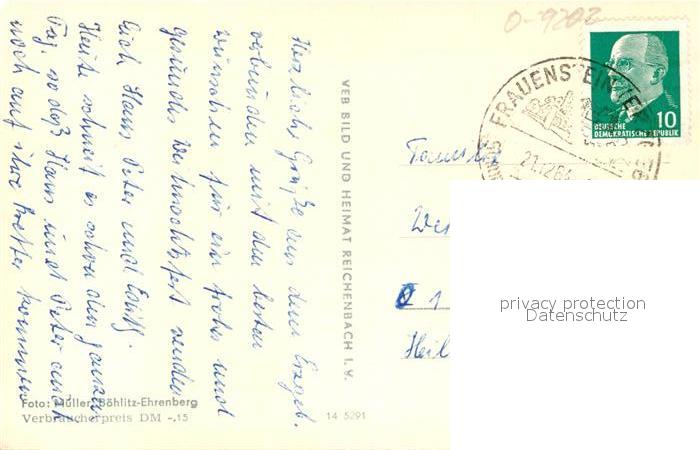 Herzliche Grüße aus dem Erzgeb.
verbunden mit den besten
Wünschen für ein frohes und
gesundes Weihnachtsfest senden
Euch Hans Peter und Edith.
Heute schneit es schon den ganzen
Tag, so daß Hans und Peter auch
noch auf ihre Bretter kommen
Foto: Müller, Böhlitz-Ehrenberg
Verbraucherpreis DM -,15
14 5291
VEB BILD UND HEIMAT REICHENBACH I. V.
0-9202
FRAUENSTEIN
21.12.64
DEUTSCHE
DEMOKRATISCHE REPUBLIK
10
1
privacy protection
Datenschutz